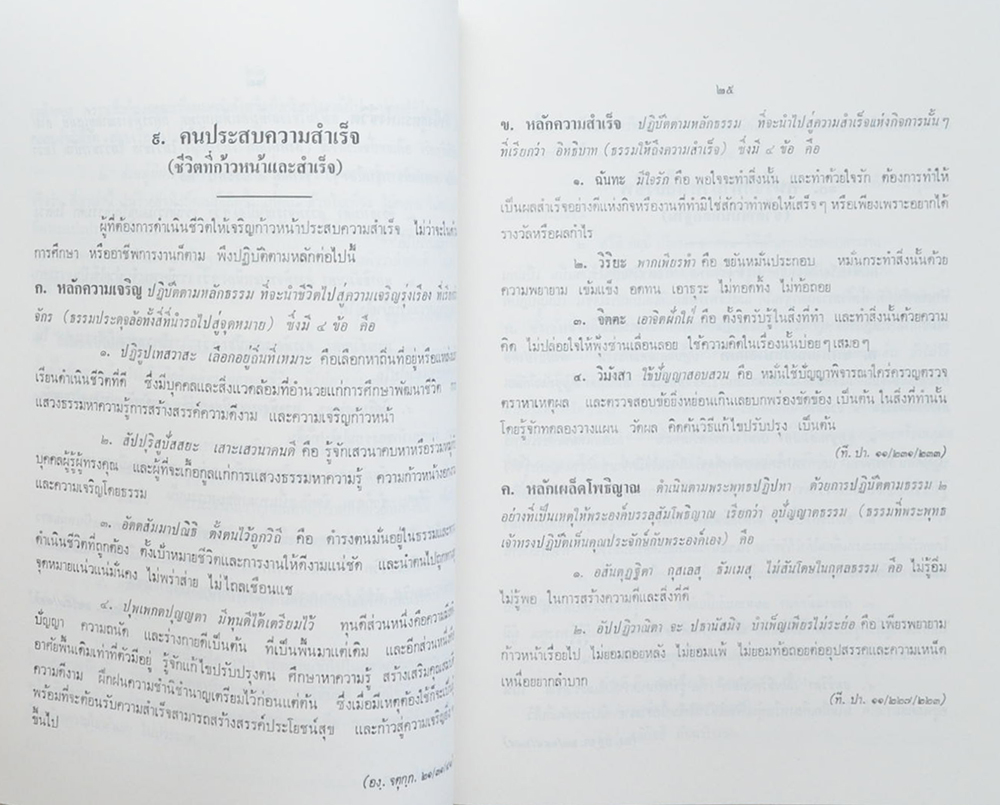 ๕. คนประสบความสำเร็จ
(ชีวิตที่ก้าวหน้าและสำเร็จ)
ผู้ที่ต้องการดำเนินชีวิตให้เจริญก้าวหน้าประสบความสำเร็จ ไม่ว่าจะ
การศึกษา หรืออาชีพการงานก็ตาม พึงปฏิบัติตามหลักต่อไปนี้
ก. หลักความเจริญ ปฏิบัติตามหลักธรรม ที่จะนำชีวิตไปสู่ความเจริญรุ่งเรือง ที่
จักร (ธรรมประดุจล้อทั้งสี่ที่นำรถไปสู่จุดหมาย) ซึ่งมี ๔ ข้อ คือ
๑. ปฏิรูปเทสวาสะ เลือกอยู่ถิ่นที่เหมาะ คือเลือกหาถิ่นที่อยู่หรือแหล่ง
เรียนดำเนินชีวิตที่ดี ซึ่งมีบุคคลและสิ่งแวดล้อมที่อำนวยแก่การศึกษาพัฒนาชีวิต
แสวงธรรมหาความรู้การสร้างสรรค์ความดีงาม และความเจริญก้าวหน้า
๒. สัปปุริสูปัสสยะ เสาะเสวนาคนดี คือ รู้จักเสวนาคบหาหรือร่วม
บุคคลผู้รู้ผู้ทรงคุณ และผู้ที่จะเกื้อกูลแก่การแสวงธรรมหาความรู้ ความก้าวหน้า
และความเจริญโดยธรรม
๓. อัตตสัมมาปณิธิ ตั้งตนไว้ถูกวิถี คือ ดำรงตนมั่นอยู่ในธรรมและ
ดำเนินชีวิตที่ถูกต้อง ตั้งเป้าหมายชีวิตและการงานให้ดีงามแน่ชัด และนำตนไป
จุดหมายแน่วแน่มั่นคง ไม่พร่าส่าย ไม่ไถลเชือนแช
๔. ปุพเพกตปุญญตา มีทุนดีได้เตรียมไว้ ทุนดีส่วนหนึ่งคือความ
ปัญญา ความถนัด และร่างกายดีเป็นต้น ที่เป็นพื้นมาแต่เดิม และอีกส่วนหนึ่ง
อาศัยพื้นเดิมเท่าที่ตัวมีอยู่ รู้จักแก้ไขปรับปรุงตน ศึกษาหาความรู้ สร้างเสริมคุณ
ความดีงาม ฝึกฝนความชำนิชำนาญเตรียมไว้ก่อนแต่ต้น ซึ่งเมื่อมีเหตุต้องใช้ก็จะเป็น
พร้อมที่จะต้อนรับความสำเร็จสามารถสร้างสรรค์ประโยชน์สุข และก้าวสู่ความเจริญ
ขึ้นไป
(องฺ. จตุกฺก. ๒๑/๓๑/
๒๕
ข. หลักความสำเร็จ ปฏิบัติตามหลักธรรม ที่จะนำไปสู่ความสำเร็จแห่งกิจการนั้นๆ
ที่เรียกว่า อิทธิบาท (ธรรมให้ถึงความสำเร็จ) ซึ่งมี ๔ ข้อ คือ
๑. ฉันทะ มีใจรัก คือ พอใจจะทำสิ่งนั้น และทำด้วยใจรัก ต้องการทำให้
เป็นผลสำเร็จอย่างดีแห่งกิจหรืองานที่ทำมิใช่สักว่าทำพอให้เสร็จๆ หรือเพียงเพราะอยากได้
รางวัลหรือผลกำไร
๒. วิริยะ พากเพียรทำ คือ ขยันหมั่นประกอบ หมั่นกระทำสิ่งนั้นด้วย
ความพยายาม เข้มแข็ง อดทน เอาธุระ ไม่ทอดทิ้ง ไม่ท้อถอย
๓. จิตตะ เอาจิตฝักใฝ่ คือ ตั้งจิตรับรู้ในสิ่งที่ทำ และทำสิ่งนั้นด้วยความ
คิด ไม่ปล่อยใจให้ฟุ้งซ่านเลื่อนลอย ใช้ความคิดในเรื่องนั้นบ่อยๆเสมอๆ
๔. วิมังสา ใช้ปัญญาสอบสวน คือ หมั่นใช้ปัญญาพิจารณาใคร่ครวญตรวจ
ตราหาเหตุผล และตรวจสอบข้อยิ่งหย่อนเกินเลยบกพร่องขัดข้อง เป็นต้น ในสิ่งที่ทำนั้น
โดยรู้จักทดลองวางแผน วัดผล คิดค้นวิธีแก้ไขปรับปรุง เป็นต้น
(ที. ปา. ๑๑/๒๓๑/๒๓๓)
ค. หลักเผล็ดโพธิญาณ ดำเนินตามพระพุทธปฏิปทา ด้วยการปฏิบัติตามธรรม ๒
อย่างที่เป็นเหตุให้พระองค์บรรลุสัมโพธิญาณ เรียกว่า อุปัญญาตธรรม (ธรรมที่พระพุทธ
เจ้าทรงปฏิบัติเห็นคุณประจักษ์กับพระองค์เอง) คือ
๑. อสันตุฏฐิตา กุสเลสุ ธัมเมสุ ไม่สันโดษในกุศลธรรม คือ ไม่รู้อิ่ม
ไม่รู้พอ ในการสร้างความดีและสิ่งที่ดี
๒. อัปปฏิวาณิตา จะ ปธานัสมิง บำเพ็ญเพียรไม่ระย่อ คือ เพียรพยายาม
ก้าวหน้าเรื่อยไป ไม่ยอมถอยหลัง ไม่ยอมแพ้ ไม่ยอมท้อถอยต่ออุปสรรคและความเหน็ด
เหนื่อยยากลำบาก
(ที. ปา. ๑๑/๒๒๗/๒๒๓)